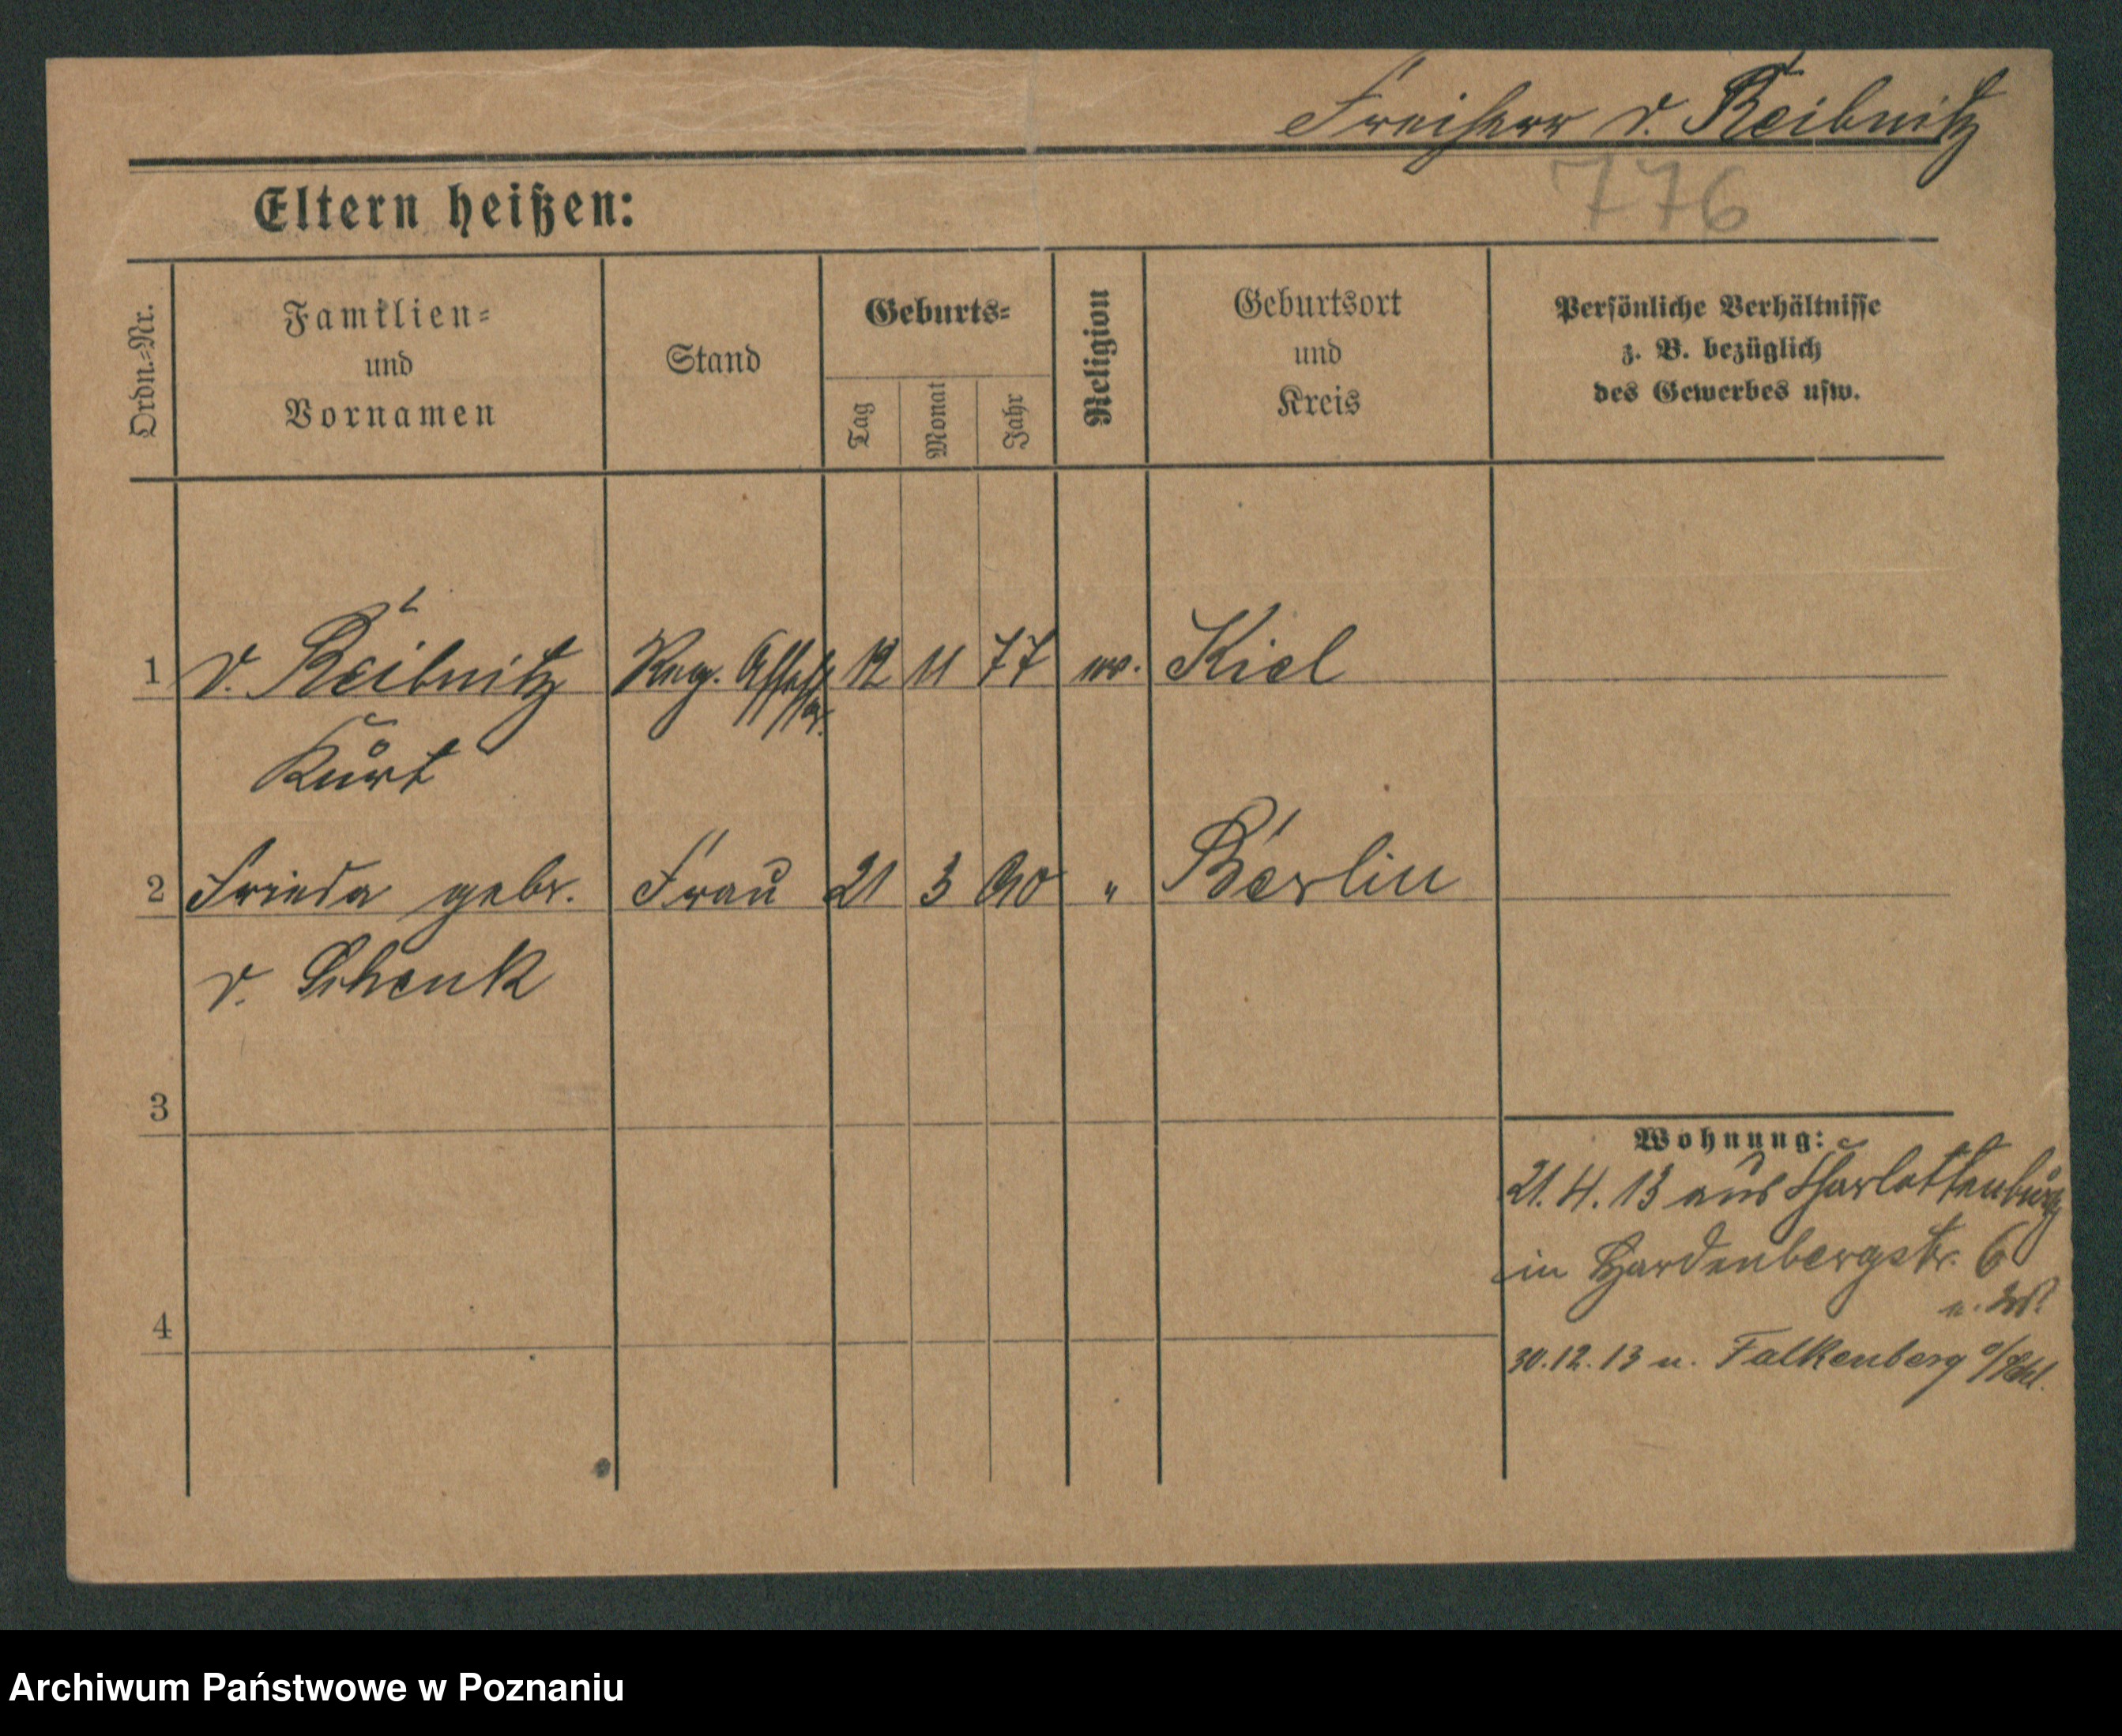 Freiherr v. Reibnitz
776
Eltern heißen:
Ordn.=Nr.
Familien=
und
Vornamen
Stand
Geburts=
Tag
Monat
Jahr
Religion
Geburtsort
und
Kreis
Persönliche Verhältnisse
z. B. bezüglich
des Gewerbes usw.
1 v. Reibnitz Reg. Assessor. 12 11 77 ev. Kiel
Kurt
2 Frieda gebr. Frau 21 3 90 " Berlin
v. Schenk
3
4
Wohnung:
21. 4. 13 aus Charlottenburg
in Hardenbergstr. 6
30. 12. 13 n. Falkenberg o/Schl.
Archiwum Państwowe w Poznaniu